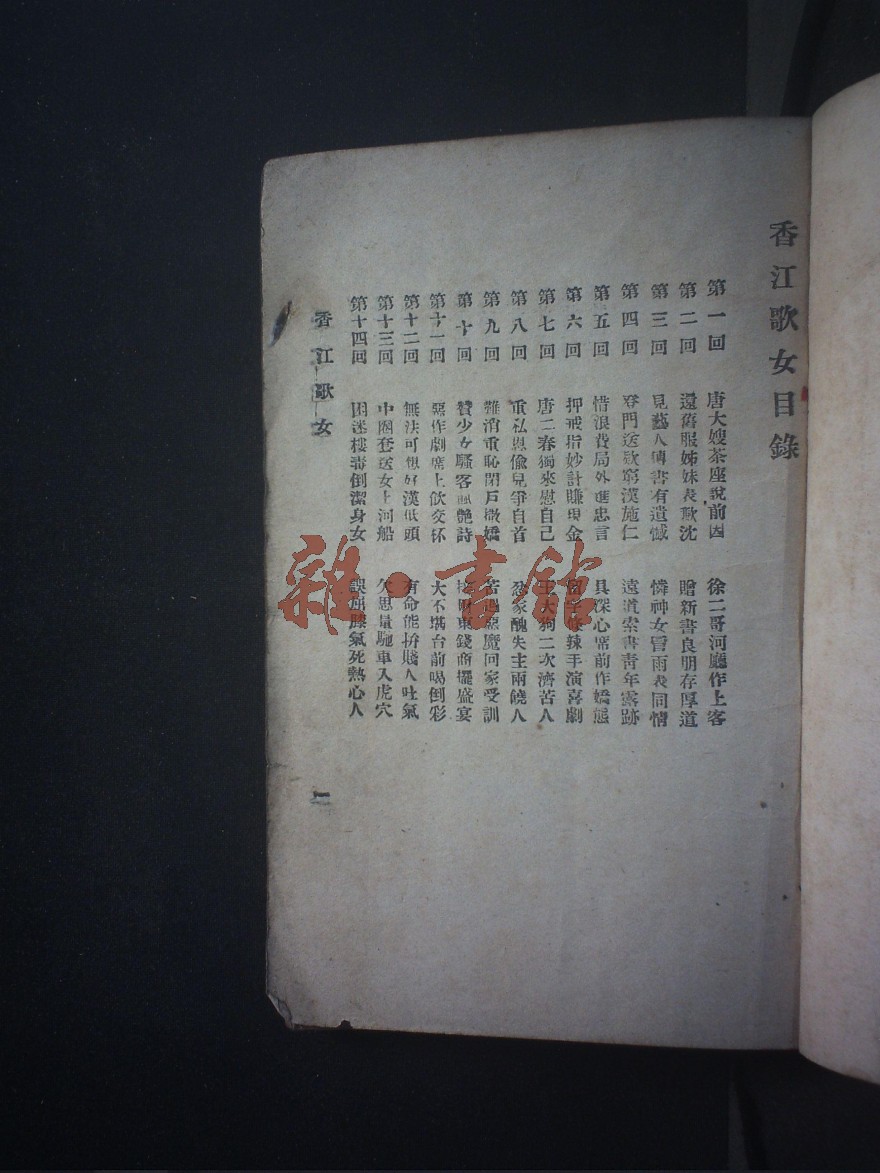 香江歌女目錄
第一回 唐大嫂茶座說前因 徐二哥河廳作上客
第二回 還舊服姊妹表歉沈 贈新書良朋存厚道
第三回 見藝人傳書有遺憾 憐神女冒雨表同情
第四回 登門送欵窮漢施仁 遠道索書靑年露跡
第五回 惜浪費局外進忠言 具深心席前作嬌態
第六回 押戒指妙計賺現金 留字條辣手演喜劇
第七回 唐二春獨來慰自己 王大狗二次濟苦人
第八回 重私恩偸兒爭自首 忿家醜失主兩饒人
第九回 難消重恥閉戶撒嬌 苦遇惡魔回家受訓
第十回 贊少女騷客賦艷詩 東錢商擺盛宴
第十一回 惡作劇席上飮交杯 大不堪台前喝倒彩
第十二回 無法可想好漢低頭 有命能拚賤人吐氣
第十三回 中圈套送女上河船 欠思量駆車入虎穴
第十四回 困迷樓毒倒潔身女 誤屈膝氣死熱心人
香江歌女
一
雜·書館